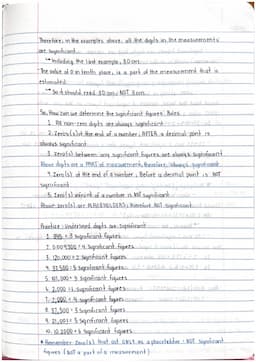 Therefore, in the examples above, all the digits in the measurements
are significant.
Including the last example, 8.0 cm.
The value of 0 in tenths place, is a part of the measurement that is
estimated.
So it should read 8.0 cm, NOT 8 cm.
So, How can we determine the significant figures? Rules
1. All non-zero digits are always significant.
2. Zero(s) at the end of a number, AFTER a decimal point is
always significant
3. Zero(s) between any significant figures are always significant
Above digits are a PART of measurement, therefore, always significant
4. Zero(s) at the end of a number, before a decimal point is NOT
significant
5. Zero(s) infront of a number is NOT significant
Above zero(s) are PLACEHOLDERS, therefore NOT significant
Practice: Underlined digits are significant
3 significant figures
4 significant figures
3. 120,000 = 2 significant figures
significant figures
significant figures
significant figures
significant figures
8. 37,500 = 3 significant figures
significant figures
significant figures
* Remember: Zero(s) that act ONLY as a placeholder: NOT significant
figures (NOT a part of a measurement)